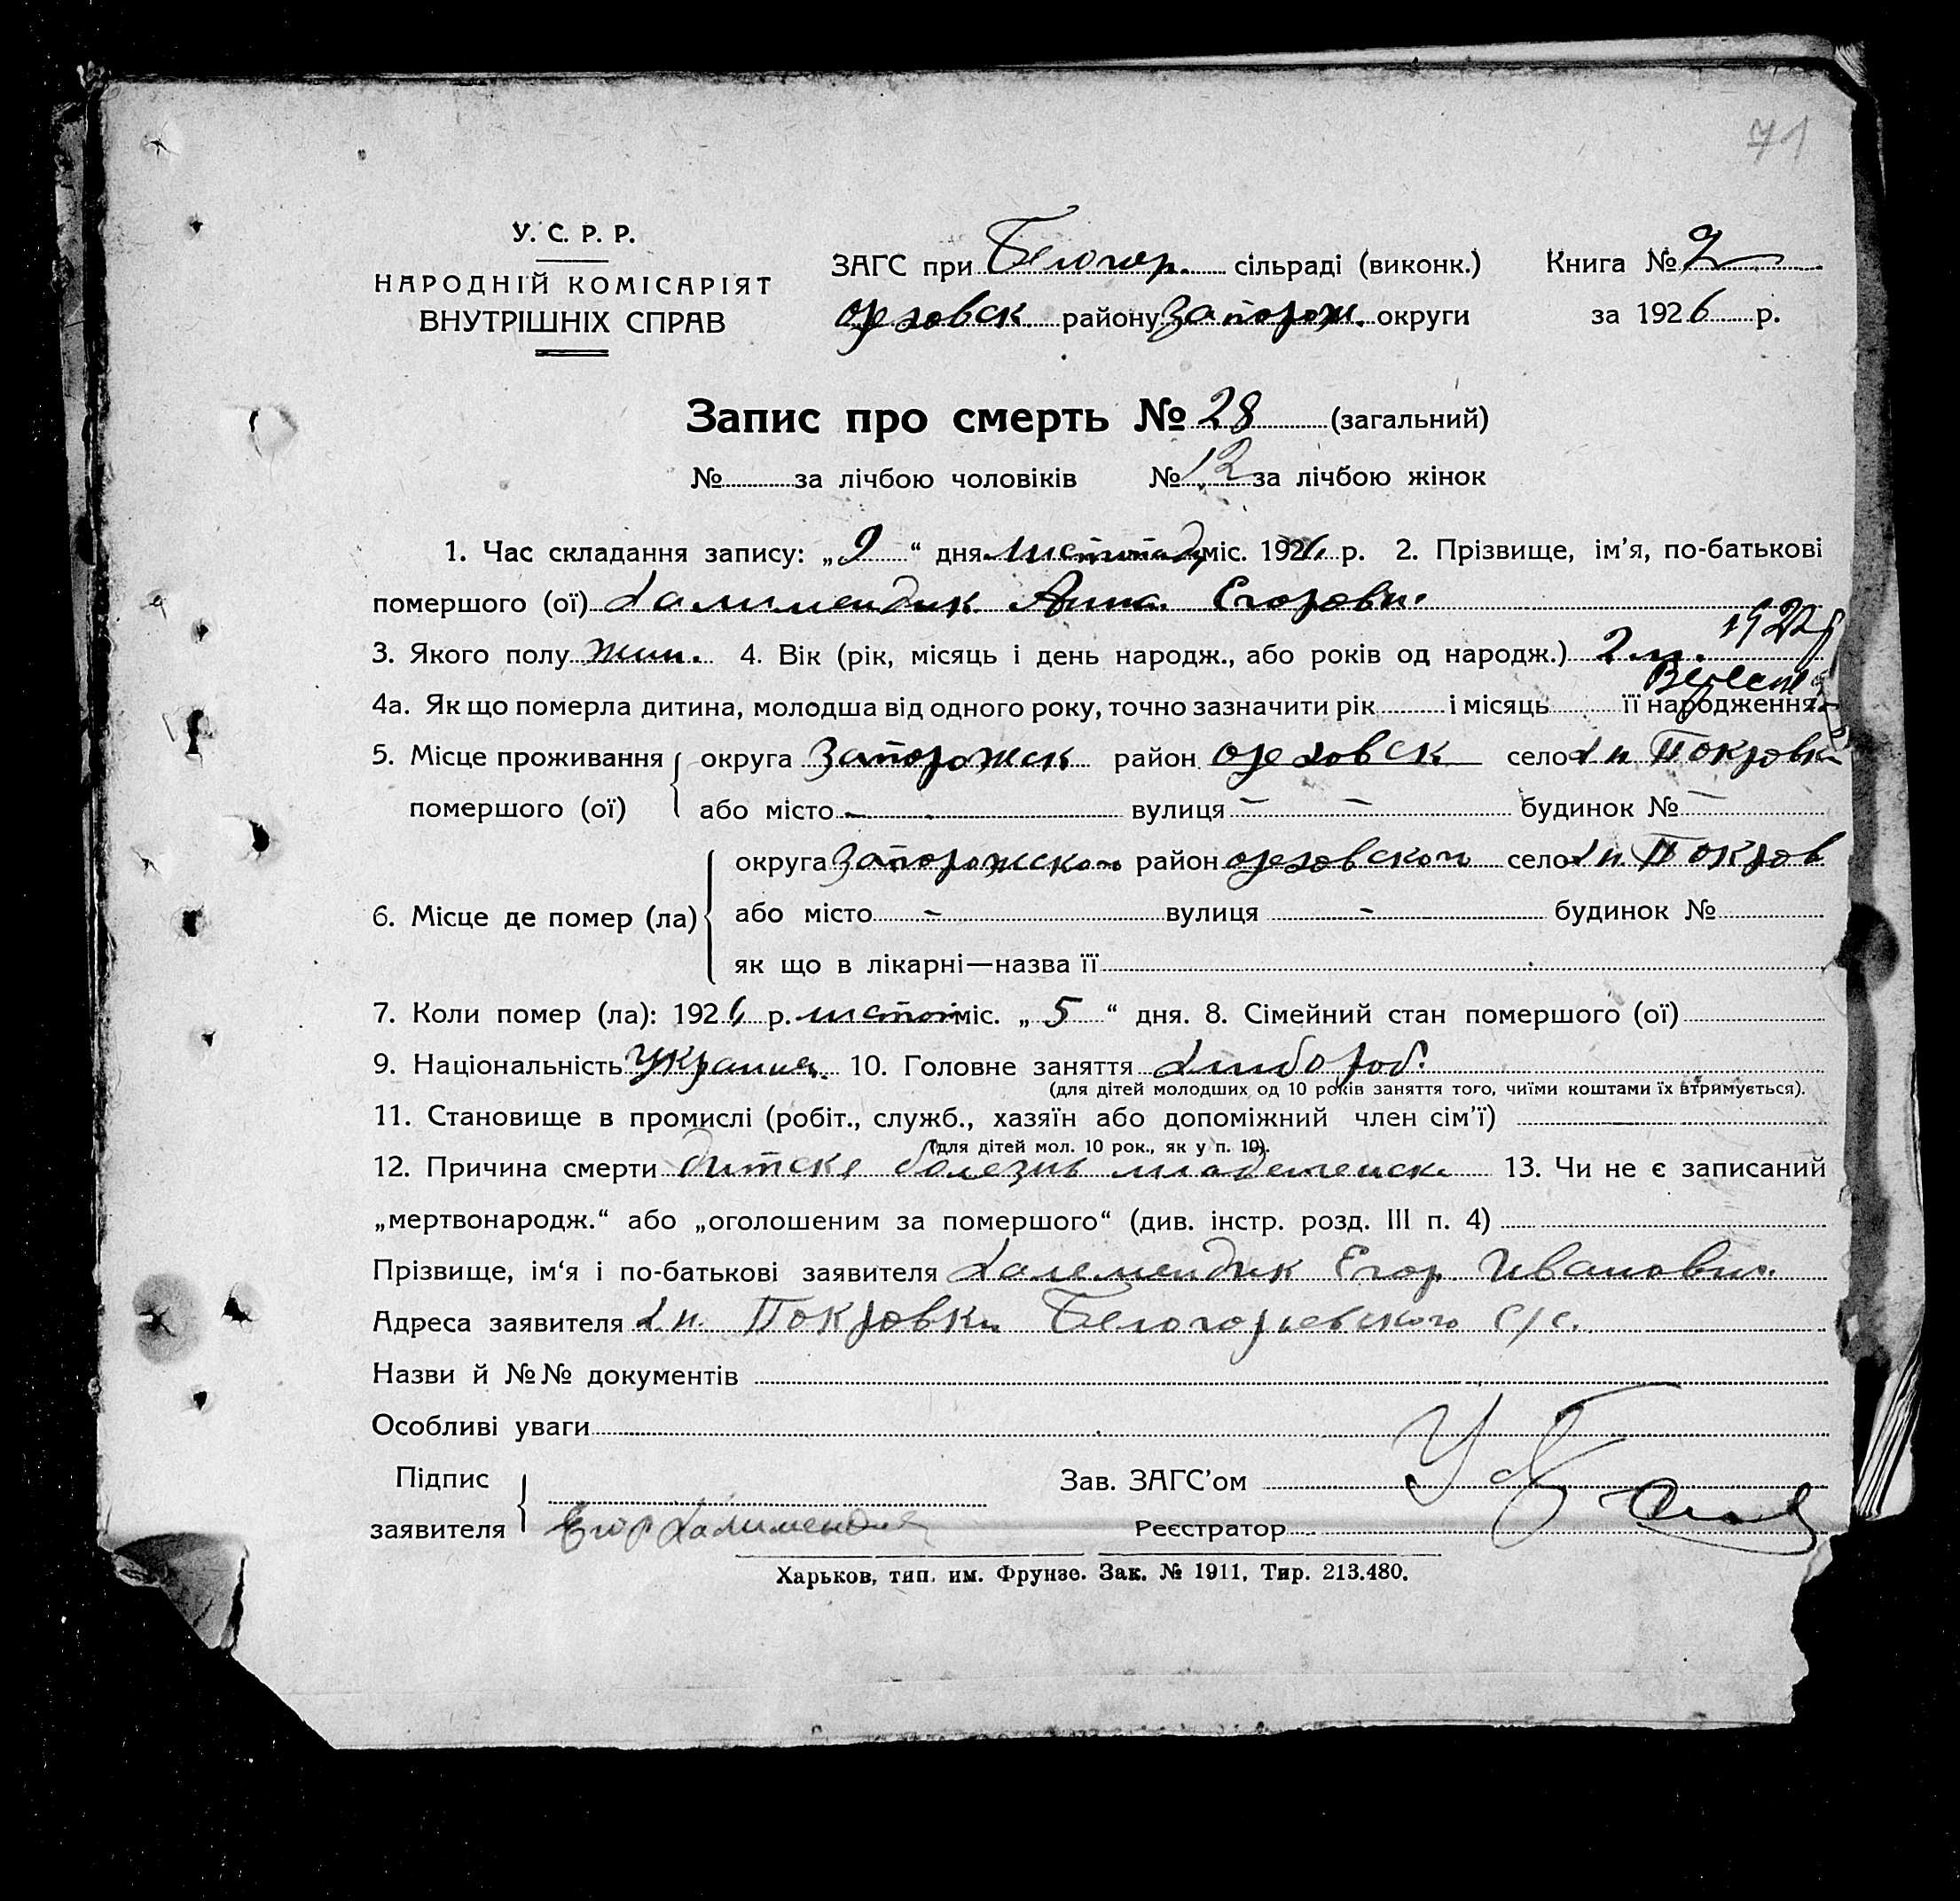 71
У. С. Р. Р.
НАРОДНІЙ КОМІСАРІЯТ
ВНУТРІШНІХ СПРАВ
ЗАГС при Белогор. сільраді (виконк.) Книга № 2
Ореховск району Запорож. округи за 1926 р.
Запис про смерть № 28 (загальний)
№ за лічбою чоловіків № 12 за лічбою жінок
1. Час складання запису: „9“ дня листопад міс. 1926 р. 2. Прізвище, ім'я, по-батькові
помершого (ої) Калимендик Анна Егоровн.
3. Якого полу жин. 4. Вік (рік, місяць і день народж., або років од народж.) 2 м. 192
4а. Якщо померла дитина, молодша від одного року, точно зазначити рік і місяць її народження
5. Місце проживання округа Запорожск район Ореховск село Покровк
помершого (ої) або місто – вулиця – – будинок № –
6. Місце де помер (ла) округа Запорожского район Ореховского село Покров
або місто – вулиця – будинок №
як що в лікарні—назва її
7. Коли помер (ла): 1926 р. листоп міс. „5“ дня. 8. Сімейний стан помершого (ої)
9. Національність Украин. 10. Головне заняття хлибороб.
(для дітей молодших од 10 років заняття того, чиїми коштами їх втримується).
11. Становище в промислі (робіт., служб., хазяїн або допоміжний член сім'ї)
(для дітей мол. 10 рок., як у п. 10).
12. Причина смерти дитске болезнь младеменск 13. Чи не є записаний
„мертвонародж.“ або „оголошеним за помершого“ (див. інстр. розд. III п. 4)
Прізвище, ім'я і по-батькові заявителя Калемендик Егор Иванович.
Адреса заявителя Покровки Белогорьевского с/с.
Назви й №№ документів
Особливі уваги
Підпис заявителя Егор Калимендик
Зав. ЗАГС'ом
Реєстратор
Харьков, тип. им. Фрунзе. Зак. № 1911, Тир. 213.480.